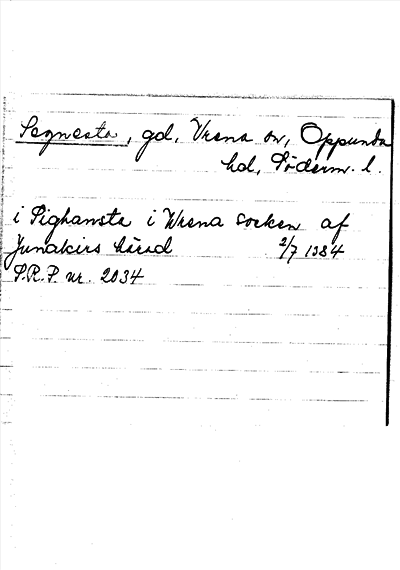 Segnesta, gd, Vrena sn, Oppunda
hd, Söderm. l.
i Sighansta i Wrena socken af
Junakirs härad 2/7 1384
S.R.P. nr. 2034